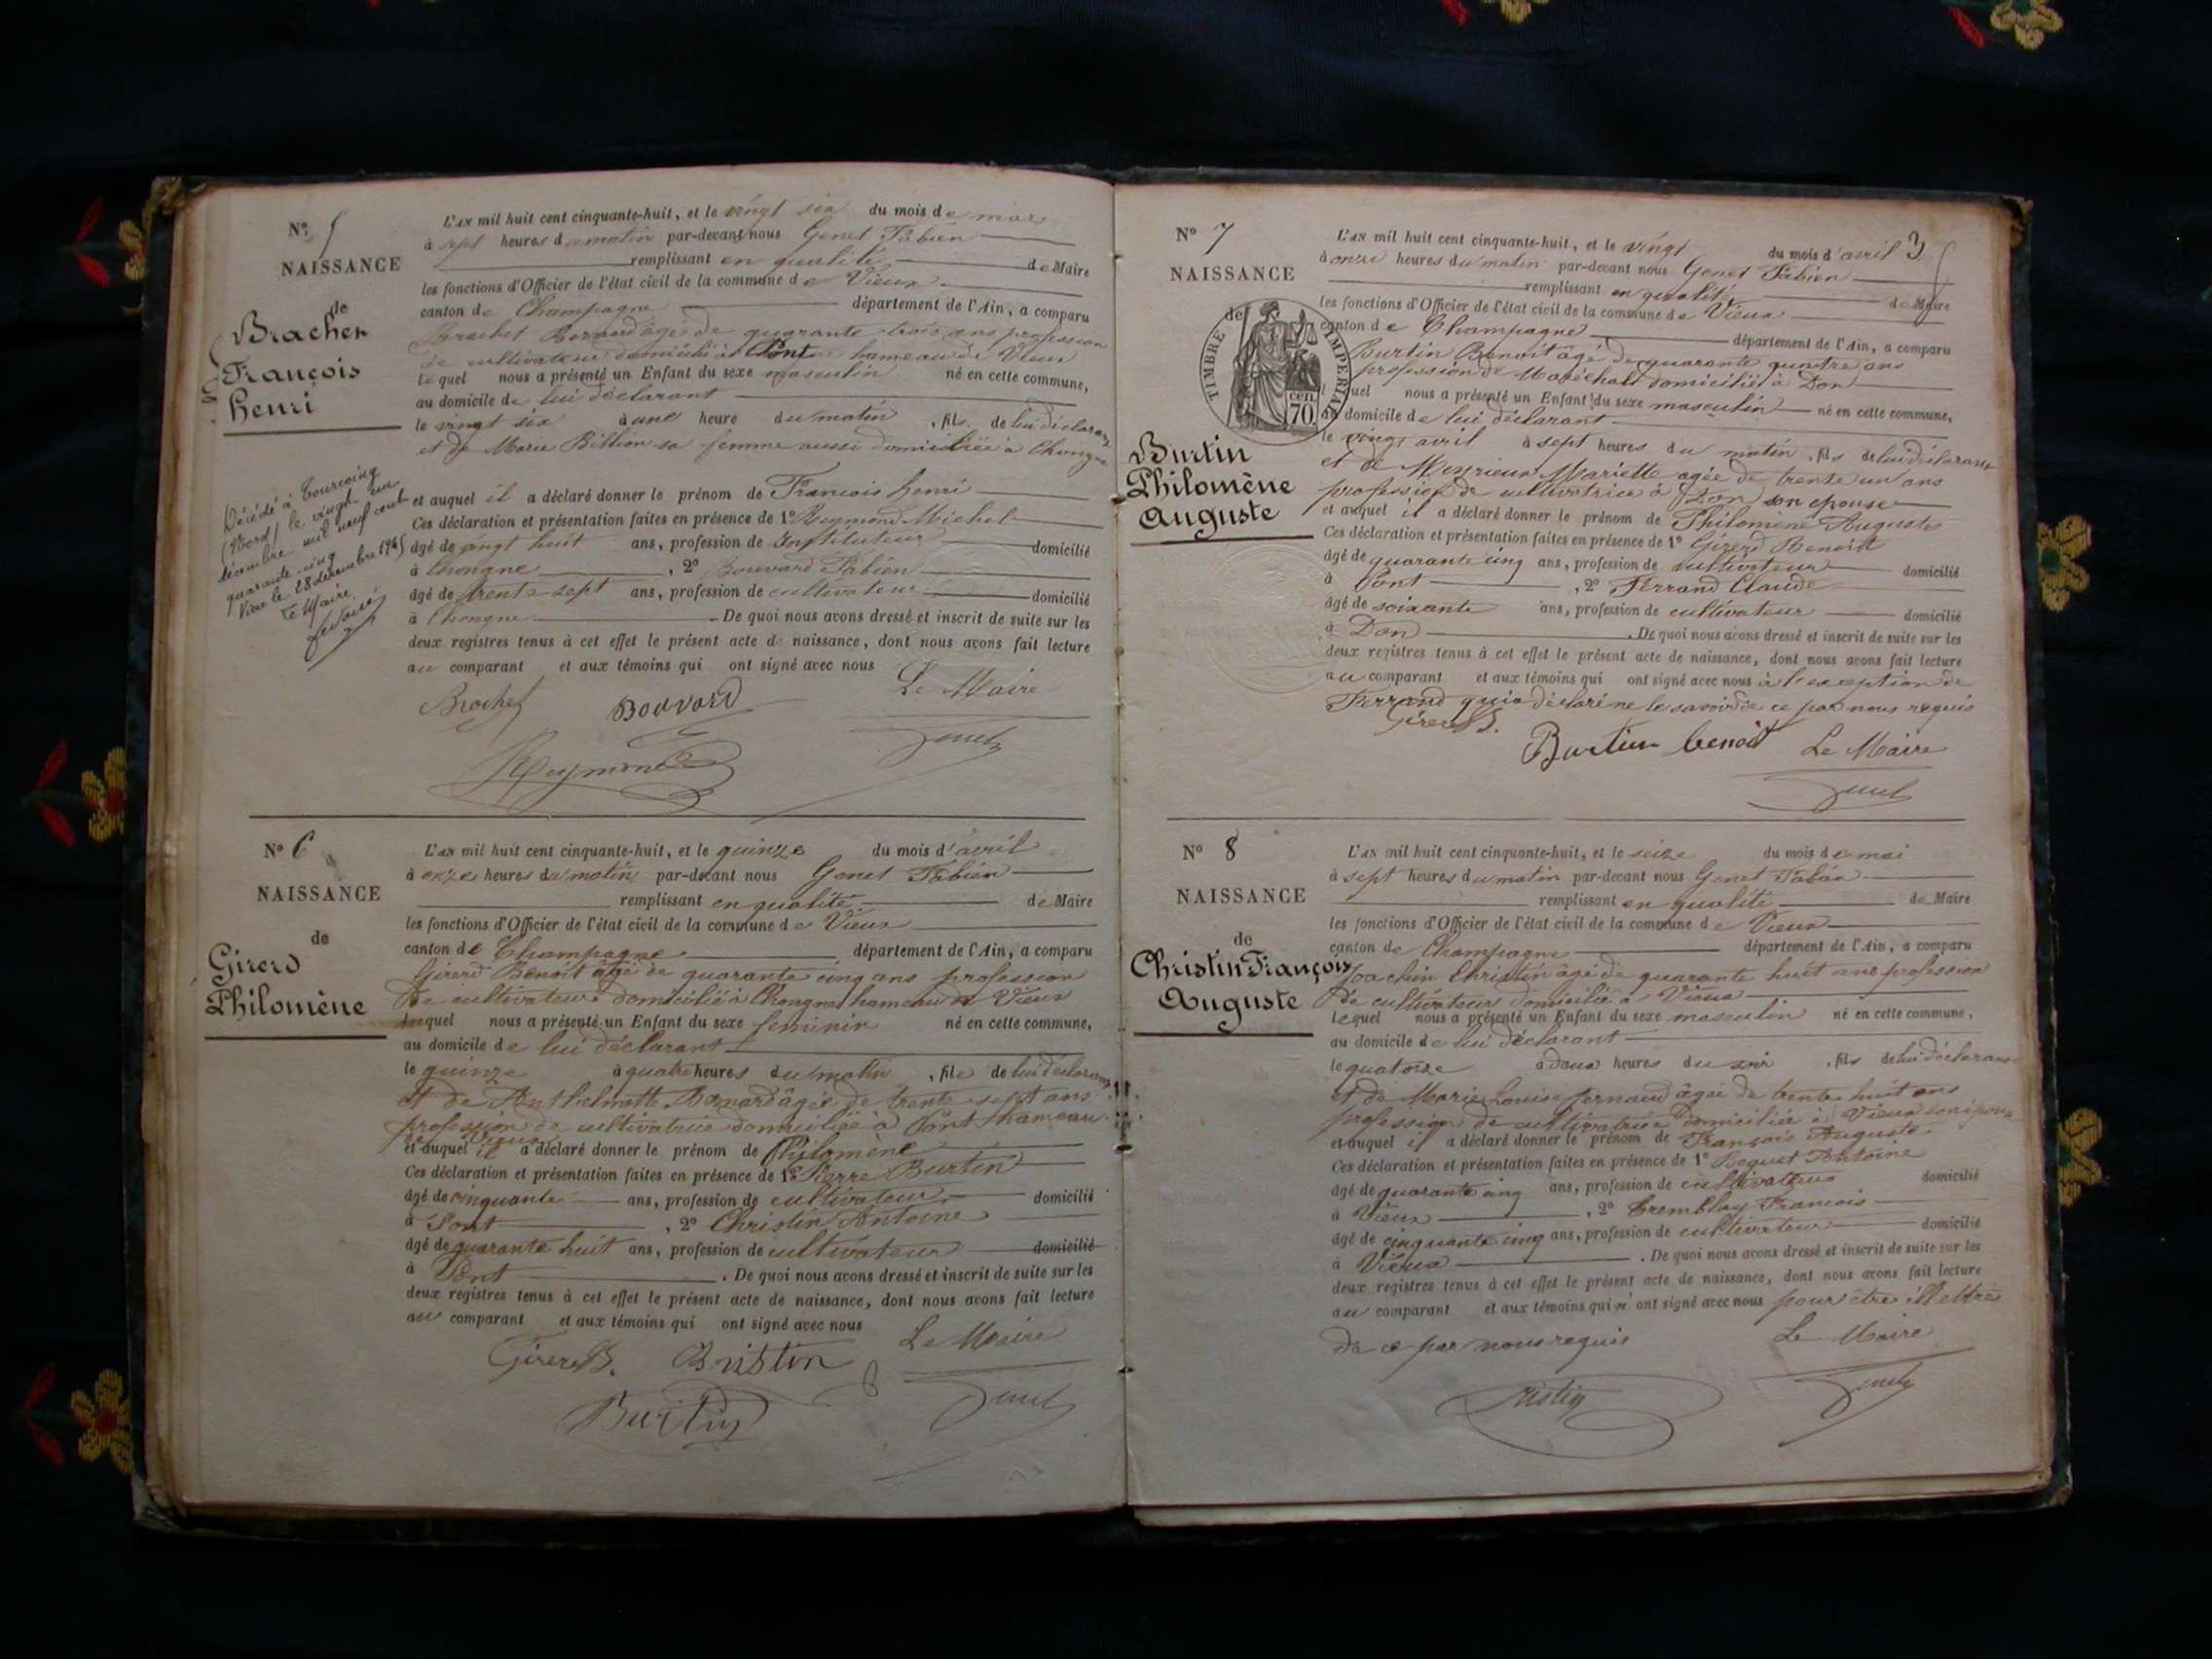 N° 5
NAISSANCE
de
Brachet
François
henri
Décédé à Tourcoing
(Nord) le vingt un
décembre mil neuf cent
quarante cinq
Vieu le 28 décembre 1945
Le Maire
L'an mil huit cent cinquante-huit, et le vingt six du mois de mars
à sept heures du matin par-devant nous Genet Fabien
remplissant en qualité de Maire
les fonctions d'Officier de l'état civil de la commune de Vieux
canton de Champagne département de l'Ain, a comparu
Brachet Bernard âgé de quarante trois ans profession
de cultivateur domicilié à Pont hameau de Vieux
Lequel nous a présenté un Enfant du sexe masculin né en cette commune,
au domicile de lui déclarant
le vingt six à une heure du matin, fils de lui déclarant
et de Marie Billion sa femme aussi domiciliée à Chongne
et auquel il a déclaré donner le prénom de François henri
Ces déclaration et présentation faites en présence de 1° Reymond Michel
âgé de vingt huit ans, profession de Instituteur domicilié
à Chongne, 2° Bouvard Fabien
âgé de trente-sept ans, profession de cultivateur domicilié
à Chongne. De quoi nous avons dressé et inscrit de suite sur les
deux registres tenus à cet effet le présent acte de naissance, dont nous avons fait lecture
au comparant et aux témoins qui ont signé avec nous
Le Maire
Brachet Bouvard
Reymond Genet
N° 6
NAISSANCE
de
Girerd
Philomène
L'an mil huit cent cinquante-huit, et le quinze du mois d'avril
à onze heures du matin par-devant nous Genet Fabien
remplissant en qualité de Maire
les fonctions d'Officier de l'état civil de la commune de Vieux
canton de Champagne département de l'Ain, a comparu
Girerd Benoit âgé de quarante cinq ans profession
de cultivateur domicilié à Chongne hameau de Vieux
Lequel nous a présenté un Enfant du sexe feminin né en cette commune,
au domicile de lui déclarant
le quinze à quatre heures du matin, file de lui déclarant
Et de Anthelmette Bonard âgée de trente sept ans
profession de cultivatrice domiciliée à Pont hameau
de Vieux
et auquel il a déclaré donner le prénom de Philomène
Ces déclaration et présentation faites en présence de 1° Pierre Burtin
âgé de cinquante ans, profession de cultivateur domicilié
à Pont, 2° Christin Antoine
âgé de quarante huit ans, profession de cultivateur domicilié
à Pont. De quoi nous avons dressé et inscrit de suite sur les
deux registres tenus à cet effet le présent acte de naissance, dont nous avons fait lecture
au comparant et aux témoins qui ont signé avec nous
Le Maire
Girerd B. Cristin
Burtin Genet
3
N° 7
NAISSANCE
de
TIMBRE IMPERIAL
70 cen
Burtin
Philomène
Auguste
L'an mil huit cent cinquante-huit, et le vingt du mois d'avril
à onze heures du matin par-devant nous Genet Fabien
remplissant en qualité de Maire
les fonctions d'Officier de l'état civil de la commune de Vieux
canton de Champagne département de l'Ain, a comparu
Burtin Benoit âgé de quarante quatre ans
profession de Maréchal domicilié à Don
lequel nous a présenté un Enfant du sexe masculin né en cette commune,
au domicile de lui déclarant
le vingt avril à sept heures du matin, fils de lui déclarant
et de Meyrieux Mariette agée de trente un ans
profession de cultivatrice à Don son epouse
et auquel il a déclaré donner le prénom de Philomène Auguste
Ces déclaration et présentation faites en présence de 1° Girerd Benoit
âgé de quarante cinq ans, profession de cultivateur domicilié
à Pont, 2° Ferrand Claude
âgé de soixante ans, profession de cultivateur domicilié
à Don. De quoi nous avons dressé et inscrit de suite sur les
deux registres tenus à cet effet le présent acte de naissance, dont nous avons fait lecture
au comparant et aux témoins qui ont signé avec nous à l'exception de
Ferrand qui a déclaré ne le savoir de ce par nous requis
Girerd B.
Burtin benoit Le Maire
Genet
N° 8
NAISSANCE
de
Christin François
Auguste
L'an mil huit cent cinquante-huit, et le seize du mois de mai
à sept heures du matin par-devant nous Genet Fabien
remplissant en qualité de Maire
les fonctions d'Officier de l'état civil de la commune de Vieux
canton de Champagne département de l'Ain, a comparu
Joachim Christin âgé de quarante huit ans profession
de cultivateur domicilié à Vieux
Lequel nous a présenté un Enfant du sexe masculin né en cette commune,
au domicile de lui déclarant
le quatorze à deux heures du soir, fils de lui déclarant
et de Marie Louise fernand âgée de trente huit ans
profession de cultivatrice domiciliée à Vieux son épouse
et auquel il a déclaré donner le prénom de François Auguste
Ces déclaration et présentation faites en présence de 1° Boquet Antoine
âgé de quarante cinq ans, profession de cultivateur domicilié
à Vieux, 2° Tremblay François
âgé de cinquante cinq ans, profession de cultivateur domicilié
à Vieux. De quoi nous avons dressé et inscrit de suite sur les
deux registres tenus à cet effet le présent acte de naissance, dont nous avons fait lecture
au comparant et aux témoins qui n'ont signé avec nous pour être illettrés
de ce par nous requis Le Maire
Cristin Genet